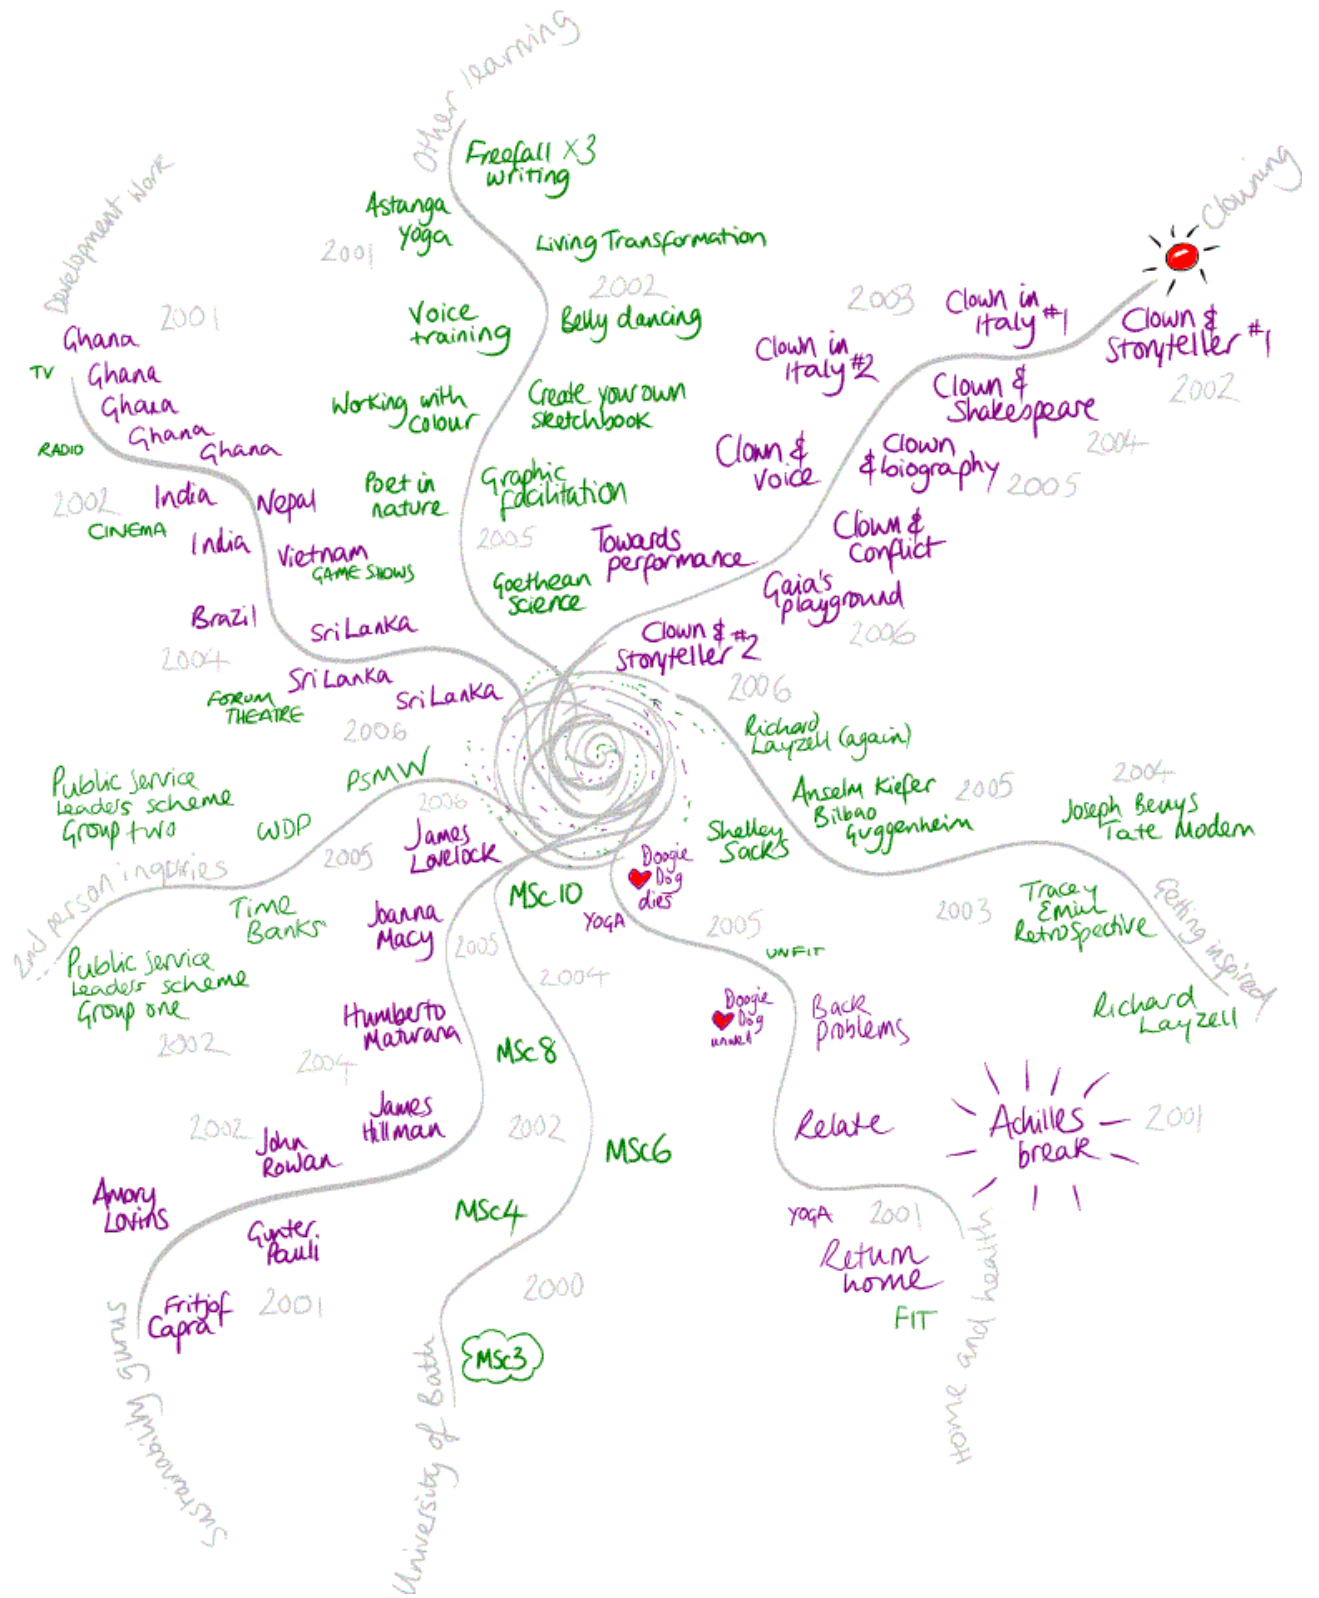 Other learning
Freefall x3
writing
Astanga
yoga
2001
Living Transformation
2002
Voice
training
Belly dancing
Working with
colour
Create your own
sketchbook
Poet in
nature
Graphic
facilitation
2005
Goethean
science
Development Work
2001
Ghana
TV
Ghana
Ghana
Ghana
RADIO
Ghana
2002
India
Nepal
CINEMA
India
Vietnam
GAME SHOWS
Brazil
Sri Lanka
2004
Sri Lanka
FORUM
THEATRE
Sri Lanka
2006
Clowning
Clown &
Storyteller #1
2002
Clown in
Italy #1
2003
Clown in
Italy #2
Clown &
Shakespeare
2004
Clown &
Voice
Clown
& biography
2005
Clown &
Conflict
Towards
performance
Gaia's
playground
2006
Clown &
Storyteller #2
2006
Richard
Layzell (again)
Anselm Kiefer
Bilbao
Guggenheim
2005
Shelley
Sacks
2004
Joseph Beuys
Tate Modern
2003
Tracey
Emin
Retrospective
Getting inspired
Richard
Layzell
PSMW
2006
Public service
Leaders scheme
Group two
WDP
2005
2nd person inquiries
Time
Banks
Public service
Leaders scheme
Group one
2002
James
Lovelock
Joanna
Macy
2005
Humberto
Maturana
2004
James
Hillman
2002
John
Rowan
Amory
Lovins
Gunter
Pauli
Fritjof
Capra
2001
Sustainability gurus
MSc 10
2004
MSc 8
2002
MSc6
MSc4
2000
MSc3
University of Bath
Doogie
Dog
dies
YOGA
2005
UNFIT
Doogie
Dog
unwell
Back
Problems
Relate
Achilles
break
2001
YOGA
2001
Return
home
FIT
Home and health